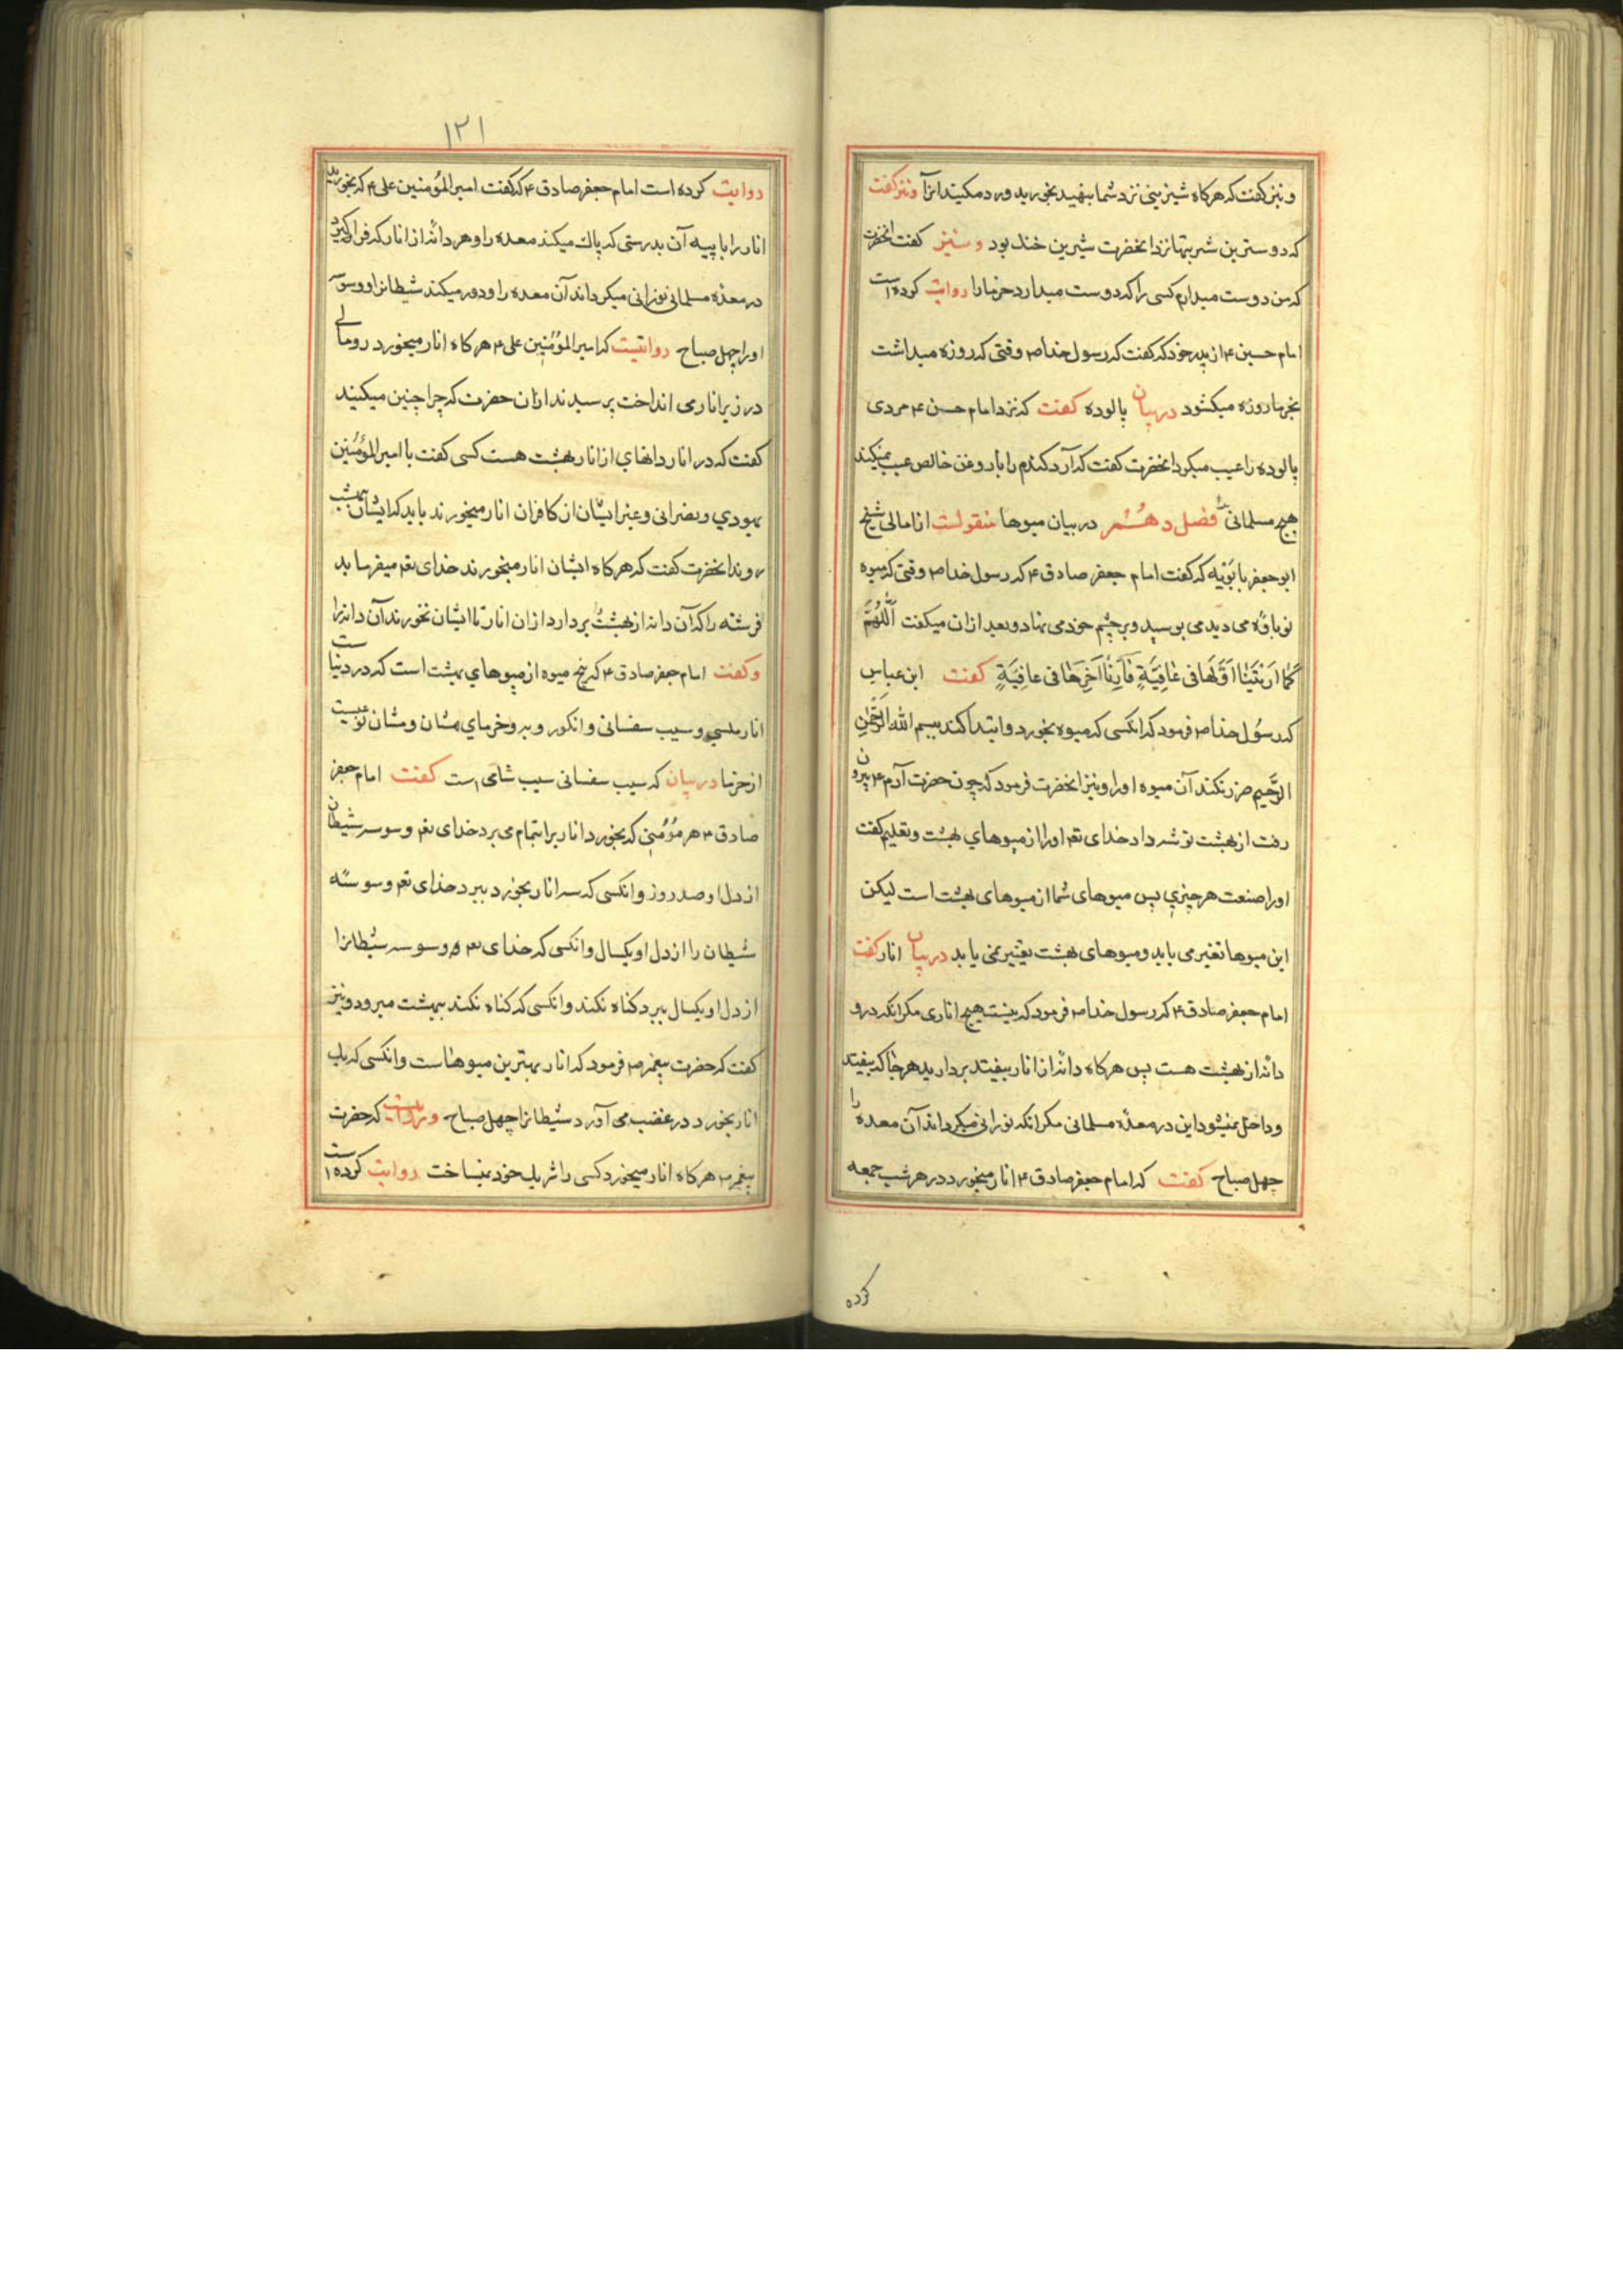 و نیز گفت که هرگاه شیرینی نزد شما بنهید بخورید و رد مکنید انرا و نیز گفت
که دوسترین شربتها نزد انحضرت شیرین خنك بود و نیز گفت انحضرت
که من دوست میدارم کسی را که دوست میدارد خرما را روایت کرده است
امام حسین ۴ از پدر خود که گفت که رسول خدا ص وقتی که روزه میداشت
بخرما روزه میکشود در بیان پالوده گفت که نزد امام حسن ۴ مردی
پالوده را عیب میکرد انحضرت گفت که آرد کندم را با روغن خالص عیب نمیکند
هیچ مسلمانی فصل دهم در بیان میوها منقولست از امالی شیخ
ابو جعفر بابویه که گفت امام جعفر صادق ۴ که رسول خدا ص وقتی که میوه
نوباوه می دید می بوسید و بر چشم خود می نهاد و بعد از ان میکفت اَللّٰهُمَّ
كَمٰا اَرَيْتَنٰا اَوَّلَهٰا فی عٰافِیَةٍ فَاَرِنٰا آخِرَهٰا فی عافِیَةٍ گفت ابن عباس
که رسول خدا ص فرمود که انکسی که میوه بخورد و ابتدا کند ببسم الله الرَّحْمٰنِ
الرَّحیم ضرر نکند آن میوه او را و نیز انحضرت فرمود که چون حضرت آدم ۴ بیرون
رفت از بهشت توشه داد خدای تعم او را از میوهای بهشت و تعلیم کفت
او را صنعت هر چیزی پس میوهای شما از میوهای بهشت است لیکن
این میوها تغیر می یابد و میوهای بهشت تغییر نمی یابد در بیان انار گفت
امام جعفر صادق ۴ که رسول خدا ص فرمود که نیست هیچ اناری مکر انکه درو
دانه از بهشت هست پس هرکاه دانه از انار بیفتد بردارید هر جا که بیفتد
و داخل نمیشود این در معدهٔ مسلمانی مکر انکه نورانی میکرداند آن معده را
چهل صباح گفت که امام جعفر صادق ۴ انار میخورد در هر شب جمعه
کرده
۱۲۱
روایت کرده است امام جعفر صادق ۴ که گفت امیر المؤمنین علی ۴ که بخورید
انار را با پیه آن بدرستی که پاك میکند معده را و هر دانه از انار که فرا کیرد
در معدهٔ مسلمانی نورانی میکرداند آن معده را و دور میکند شیطانرا و وسوسه
او را چهل صباح روایتست که امیر المؤمنین علی ۴ هر کاه انار میخورد رومالی
در زیر اناری انداخت پرسیدند از ان حضرت که چرا چنین میکنید
کفت که در انار دانهای از انار بهشت هست کسی کفت یا امیر المؤمنین
یهودی و نصرانی و غیر ایشان از کافران انار میخورند باید که ایشان ببهشت
روند انحضرت کفت که هرکاه ایشان انار میخورند خدای تعم میفرساید
فرشته را که آن دانه از بهشت بردارد از ان انار تا ایشان نخورند آن دانرا
و گفت امام جعفر صادق ۴ که پنج میوه از میوهای بهشت است که در دنیا ست
انار ملسی و سیب سفسانی و انکور و به و خرمای مشان و مشان نوعیست
از خرما در بیان که سیب سفسانی سیب شامی است گفت امام جعفر
صادق ۴ هر مؤمنی که بخورد انار برا بتمام می برد خدای تعم وسوسه شیطان
از دل او صد روز و انکسی که سه انار بخورد ببرد خدای تعم وسوسهٔ
شیطان را از دل او یکسال و انکسی که خدای تعم وسوسه شیطانرا
از دل او یکسال ببرد کناه نکند و انکسی که کناه نکند ببهشت میرود و نیز
کفت که حضرت پیغمبر ص فرمود که انار بهترین میوهاست و انکسی که یك
انار بخورد در غضب می آورد شیطانرا چهل صباح و روایتست که حضرت
پیغمبر ص هرکاه انار میخورد کسی را شریك خود نمیساخت روایت کرده است